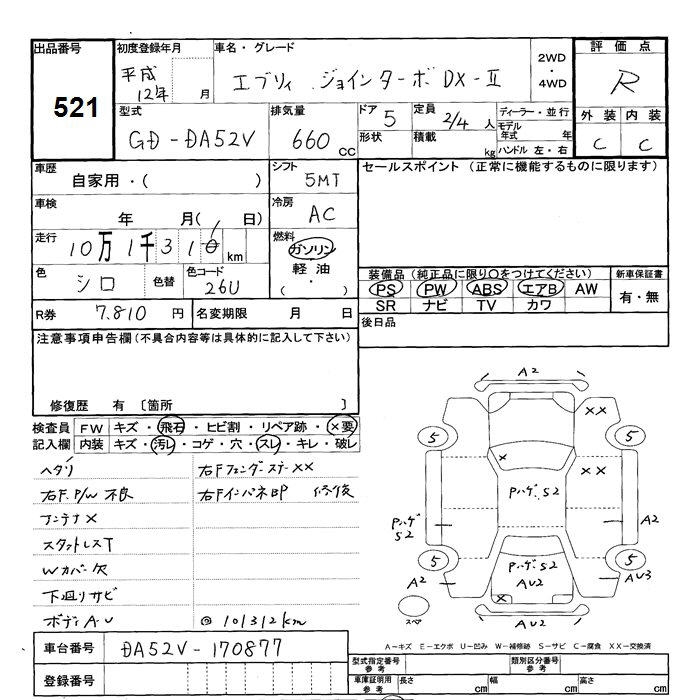 出品番号 初度登録年月 車名・グレード 評価点
521
平成12年 月 エブリィ ジョインターボDX-Ⅱ 2WD・4WD R
型式 排気量 ドア 定員 ディーラー・並行 外装 内装
GD-DA52V 660cc 5 2/4人 モデル年式 年 C C
形状 積載 kg ハンドル 左・右
車歴 シフト セールスポイント(正常に機能するものに限ります)
自家用・( ) 5MT
車検 年 月( 日) 冷房 AC
走行 10万1千31 km 燃料 ガソリン
軽油
・
( )
色 シロ 色替 色コード 26U
装備品(純正品に限り○をつけてください) 新車保証書
PS PW ABS エアB AW 有・無
SR ナビ TV カワ
R券 7.810円 名変期限 月 日 後日品
注意事項申告欄(不具合内容等は具体的に記入して下さい)
修復歴 有 〔箇所 〕
検査員 FW キズ・飛石・ヒビ割・リペア跡・×要
記入欄 内装 キズ・汚レ・コゲ・穴・スレ・キレ・破レ
ヘタリ 右Fフェンダーステー××
右F.P/W不良 右FインパネBP 修復
アンテナ×
スタットレスT
Wカバー欠
下廻りサビ
ボディA・U ◎101312km
A2
××
5 5
×
××
Pハゲ S2
Pハゲ S2
A2
5 5
Pハゲ S2
A2 AU2 AU3
×
スペア AU2
A-キズ E-エクボ U-凹み W-補修跡 S-サビ C-腐食 XX-交換済
車台番号 DA52V-170877
登録番号
型式指定番号 参考 類別区分番号 参考
車庫証明用 参考 長さ cm 幅 cm 高さ cm